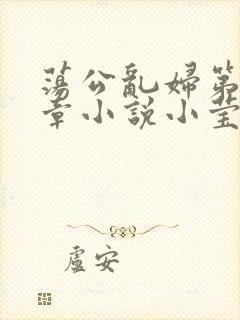 蕩公亂婦第
章小説小莹
盧安